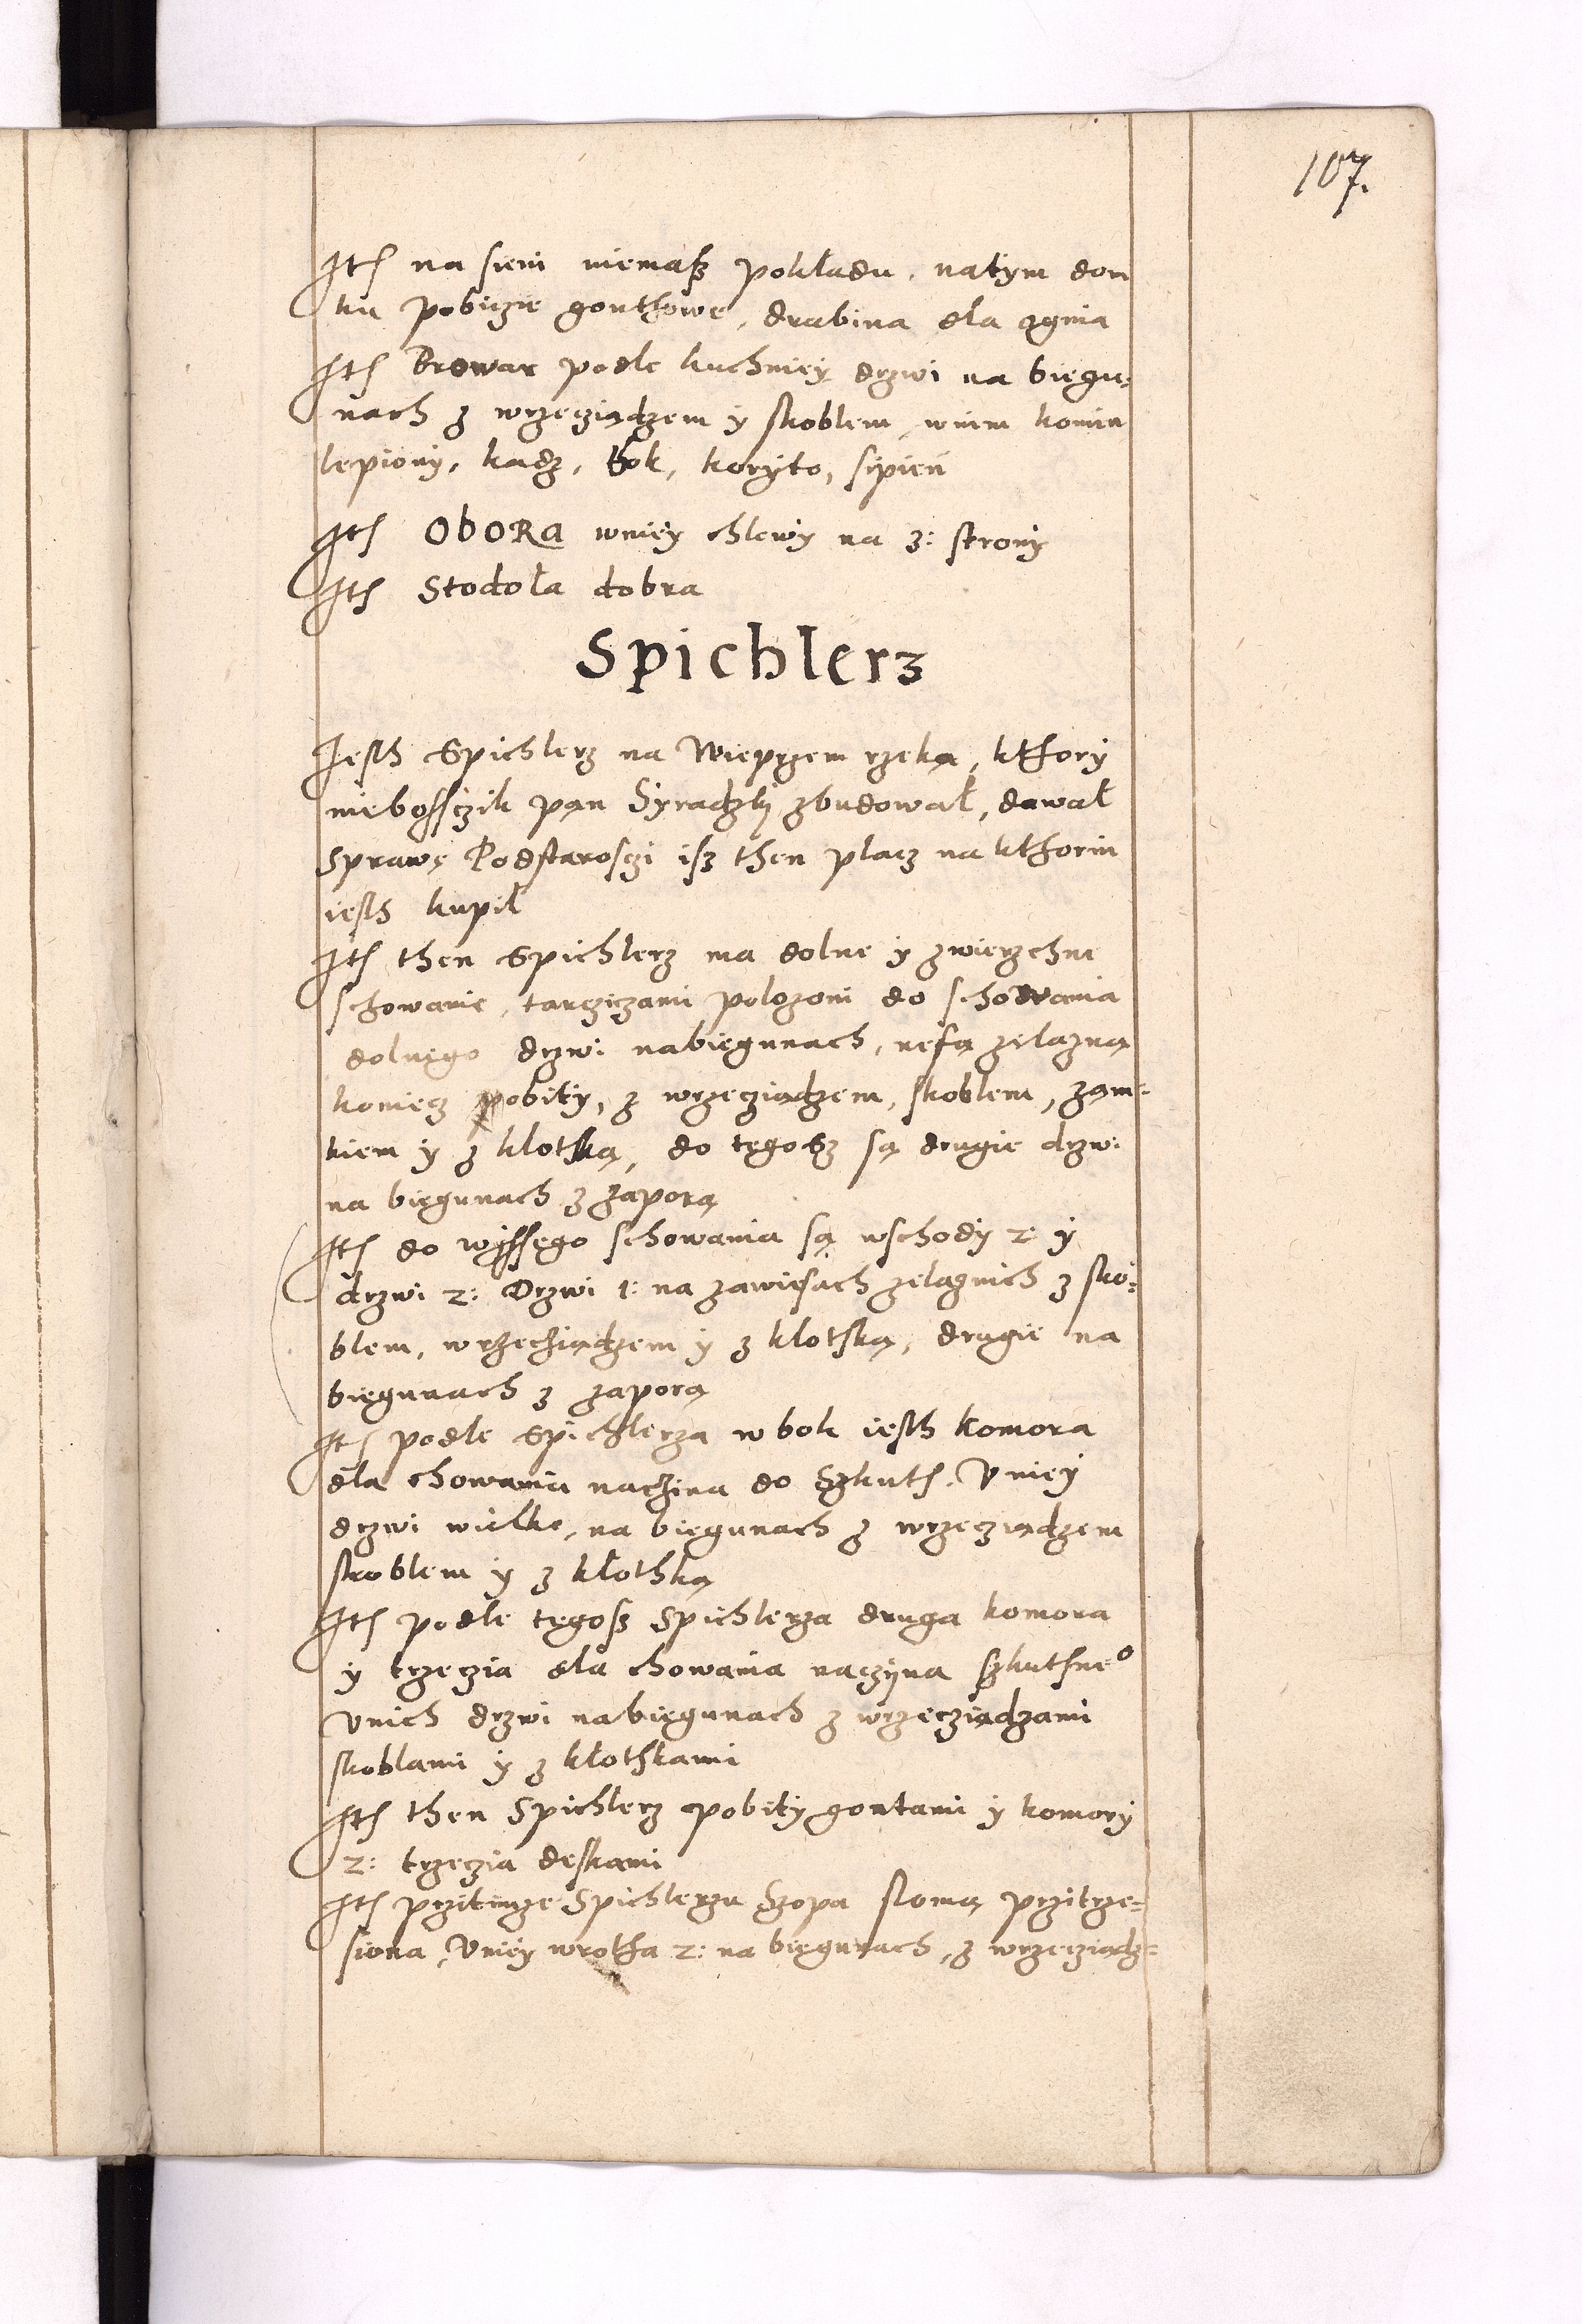 107.
Itē na sieni niemasz pokładu, natym dom
ku pobiczie gonthowe, drabina dla ognia
Itē Browar podle kuchniey drzwi na biegu:
nach z wrzecziądzem y skoblem, wnim komin
lepiony, kadz, kok, koryto, sipień
Itē Obora wniey chlewy na 3: strony
Itē Stodoła dobra
Spichlerz
Iesth Spichlerz na Wieprzem rzeką, kthory
niebosczik pan Syradzky zbudował, dawał
sprawę Podstarosczi isz then placz na kthorim
iesth kupił
Itē then Spichlerz ma dolne y zwierzchne
schowanie, tarcziczami polozoni do schowania
dolnego drzwi nabiegunach, refą zelazną
koniecz pobity, z wrzecziądzem, skoblem, zam:
kiem y z klotką, do tegosz są drugie drzwi
na biegunach z zaporą
Itē do wyssego schowania są wschody 2: y
drzwi 2: Drzwi 1: na zawiesach zelaznich z sko:
blem, wrzecziądzem y z klotką, drugie na
biegunach z zaporą
Itē podle Spichlerza wbok iesth komora
dla chowania naczina do Szkuth. Vniey
drzwi wielke, na biegunach z wrzecziądzem
skoblem y z kłothką
Itē podle tegosz Spichlerza druga komora
y trzeczia dla chowania naczyna szkuthne°
Vnich drzwi nabiegunach z wrzecziądzami
skoblami y z kłothkami
Itē then Spichlerz pobity gontami y komory
2: trzeczia deskami
Itē przitimze Spichlerzu Szopa słomą przitrze:
siona, Vniey wrotha 2: na biegunach, z wrzecziądz: